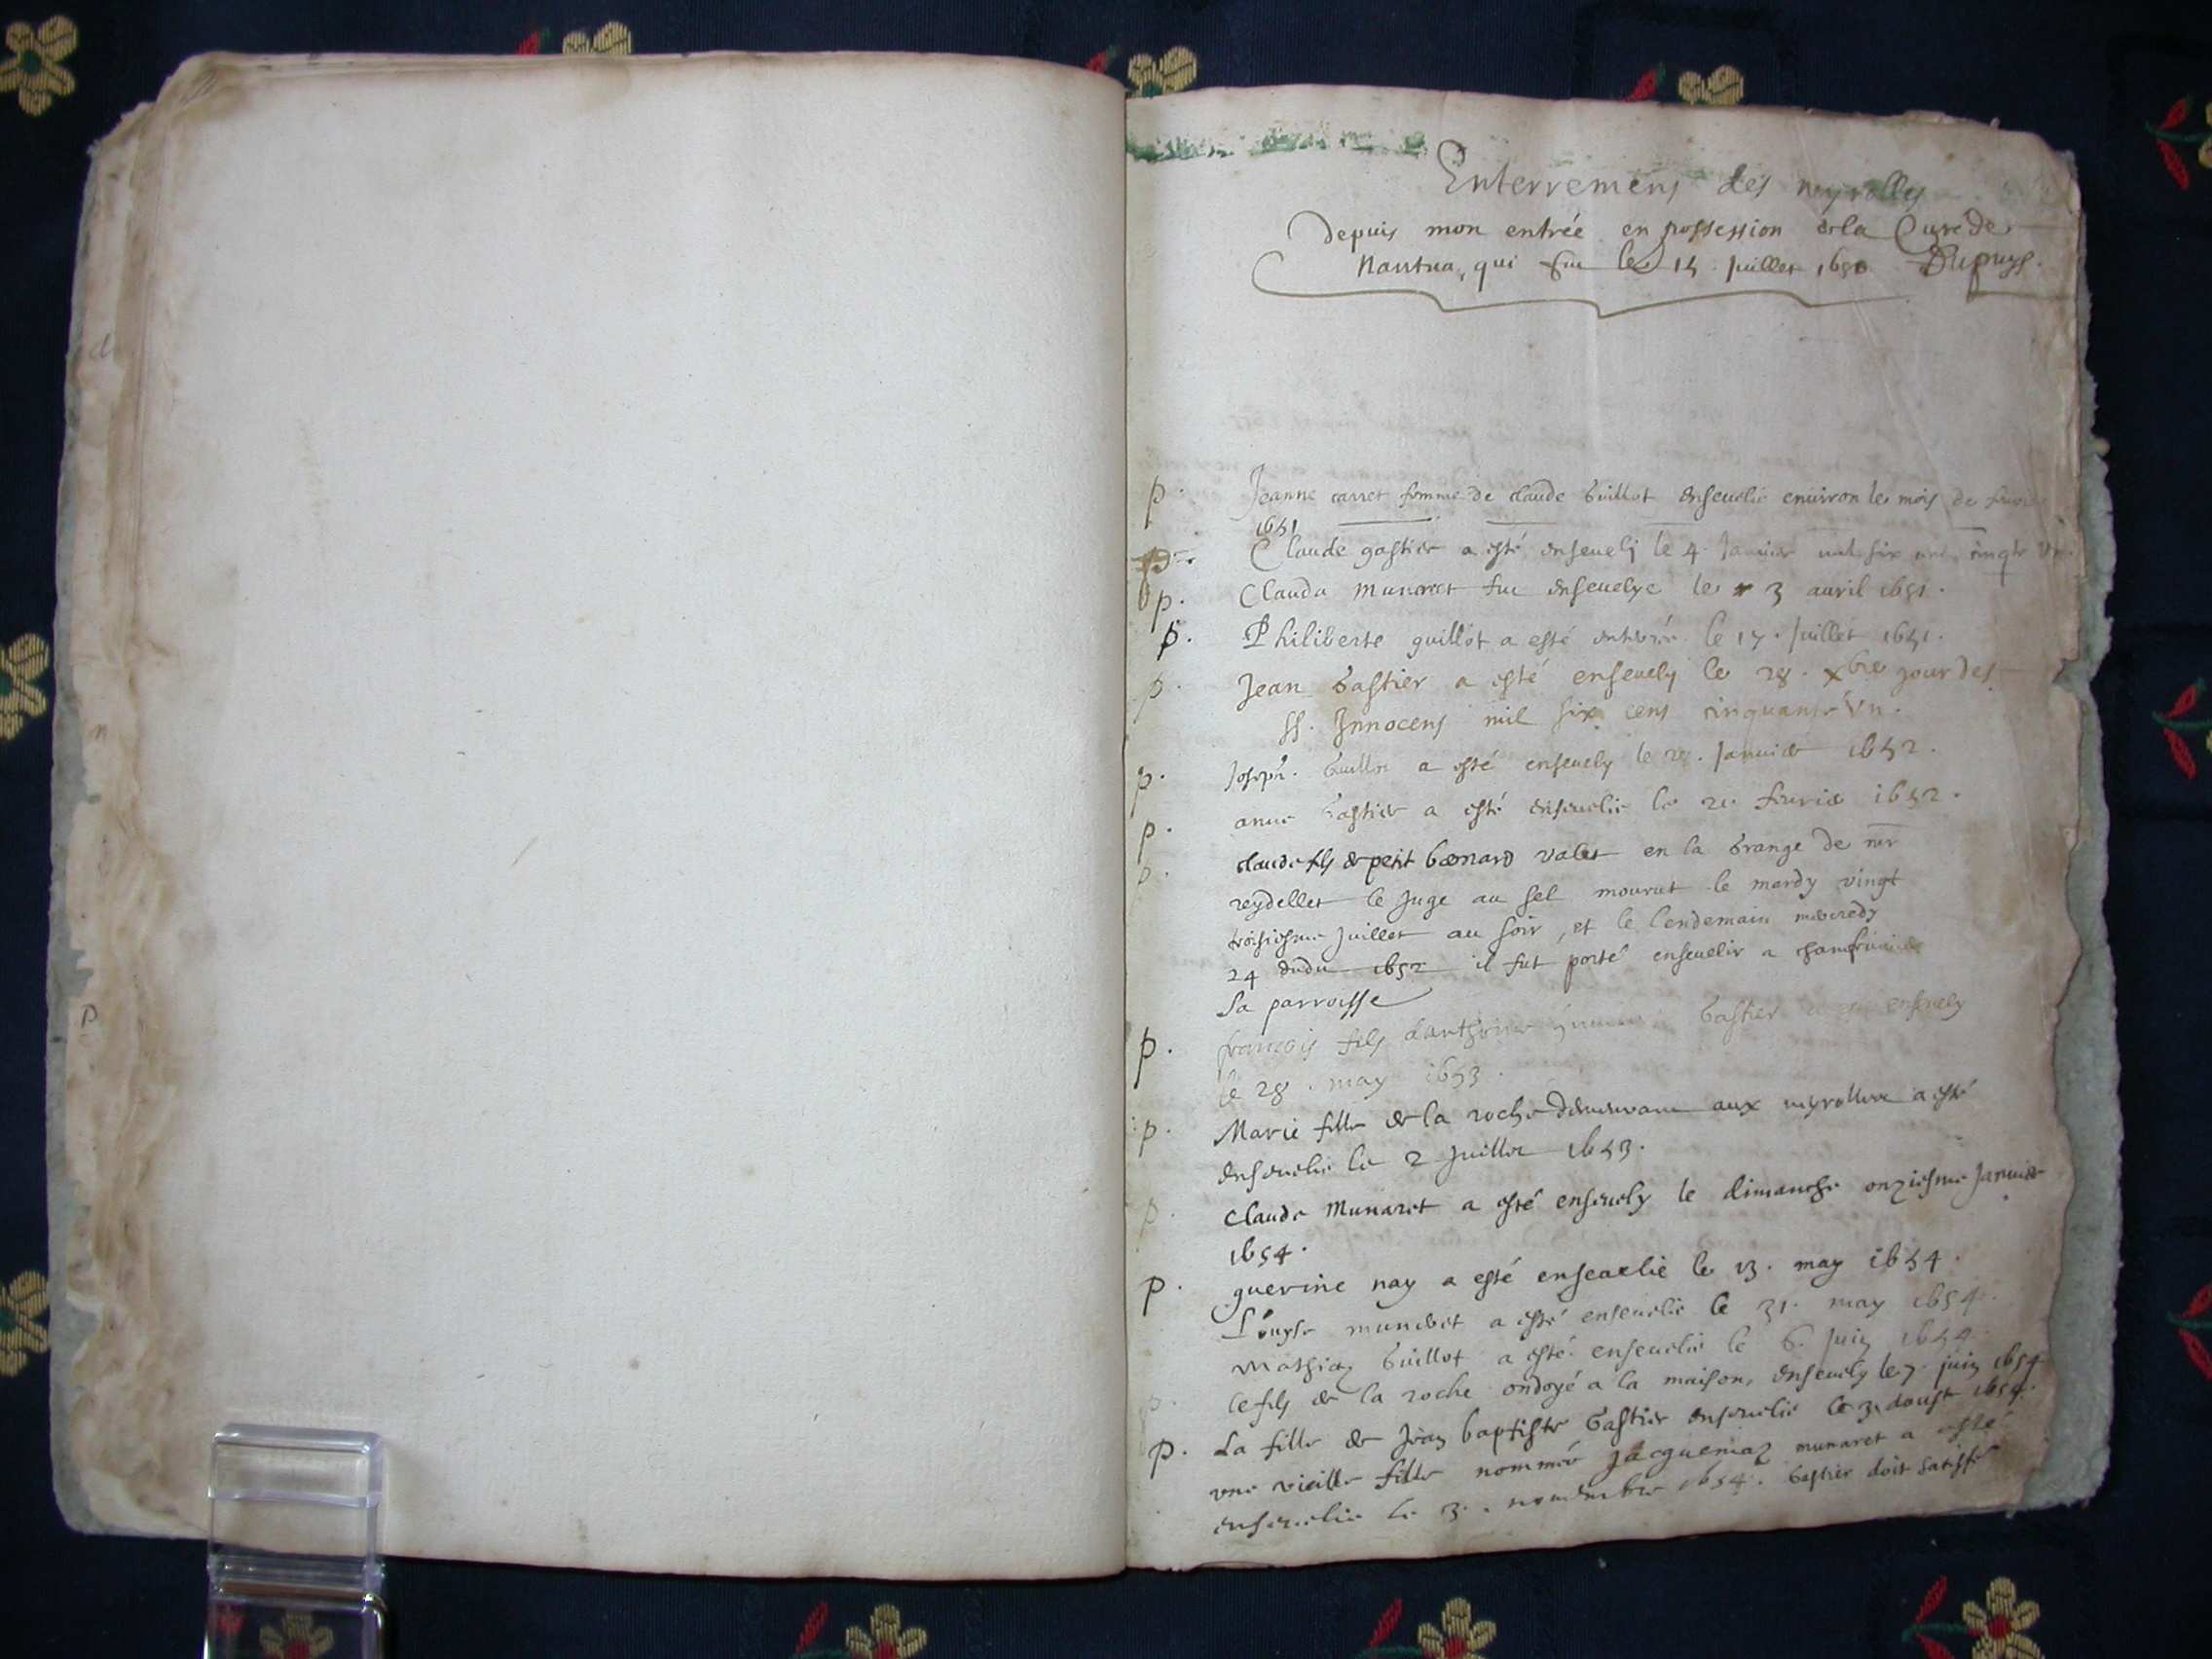 Enterremens des neyrolles
Depuis mon entrée en possession de la Cure de
Nantua, qui fut le 15 Juillet 1650 Dupuys.
p. Jeanne carret femme de claude Guillot enseuelie enuiron le mois de
1651
p. Claude gastier a esté enseuelj le 4 Januier mil six cens cinqte Vn
p. Clauda Munaret fut enseuelye le 3 auril 1651.
p. Philiberte guillot a esté enterrée le 17. Juillet 1651.
p. Jean Gastier a esté enseuely le 28. xbre jour des
SS. Innocens mil six cens cinquante Vn.
p. Joseph. Guillot a esté enseuely le 28. Januier 1652.
p. anne Gastier a esté enseuelie le feurier 1652.
p. claude fils de petit bernard valet en la Grange de mr
reydellet le Juge au sel mourut le mardy vingt
troisiesme Juillet au soir, et le lendemain mecredy
24 dudit 1652 il fut porté enseuelir a
sa parroisse
p. francois fils danthoine Gastier enseuely
le 28. may 1653.
p. Marie fille de la roche demeurant aux neyrolles a esté
enseuelie le 2 Juillet 1653.
p. Claude Munaret a esté enseuely le dimanche onziesme Januier
1654.
p. guerine nay a esté enseuelie le 13. may 1654.
Louyse muneret a esté enseuelie le 31. may 1654.
Mathiaz Guillot a esté enseuelie le 6. Juin 1654.
p. le fils de la roche ondoyé a la maison, enseuely le 7. juin 1654
p. La fille de Jean baptiste Gastier enseuelie le 3. doust 1654.
vne vieille fille nommée Jacquemaz munaret a esté
enseuelie le 3. nouembre 1654. Gastier doit satisfe